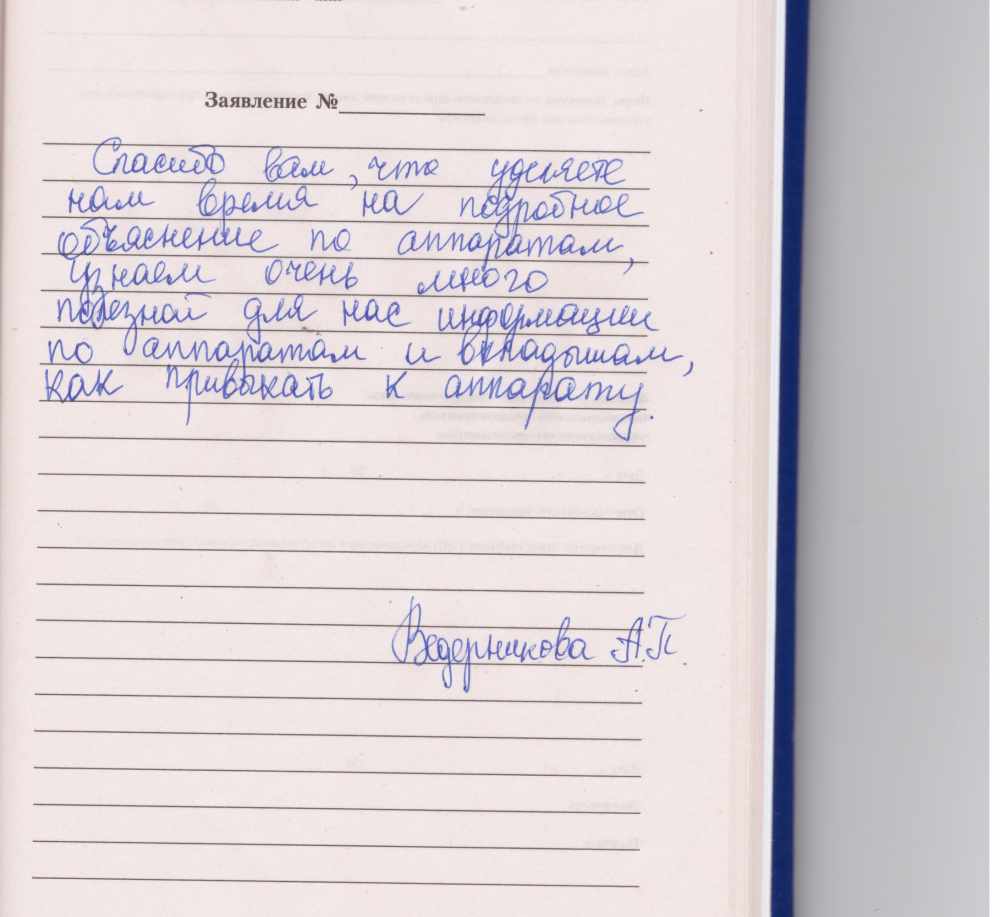 Заявление №
Спасибо вам, что уделяете
нам время на подробное
объяснение по аппаратам,
узнаем очень много
полезной для нас информации
по аппаратам и вкладышам,
как привыкать к аппарату.
Ведерникова А.П.